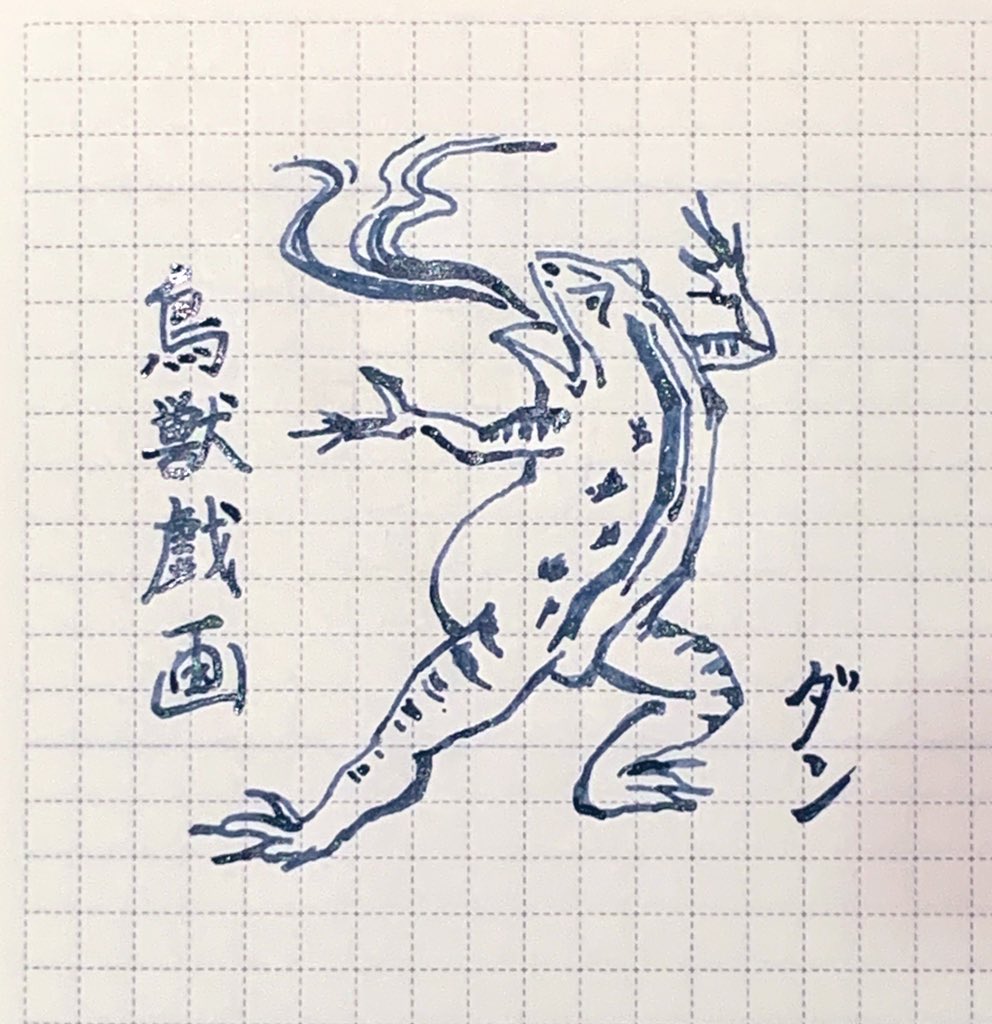 鳥獣戯画
ダン